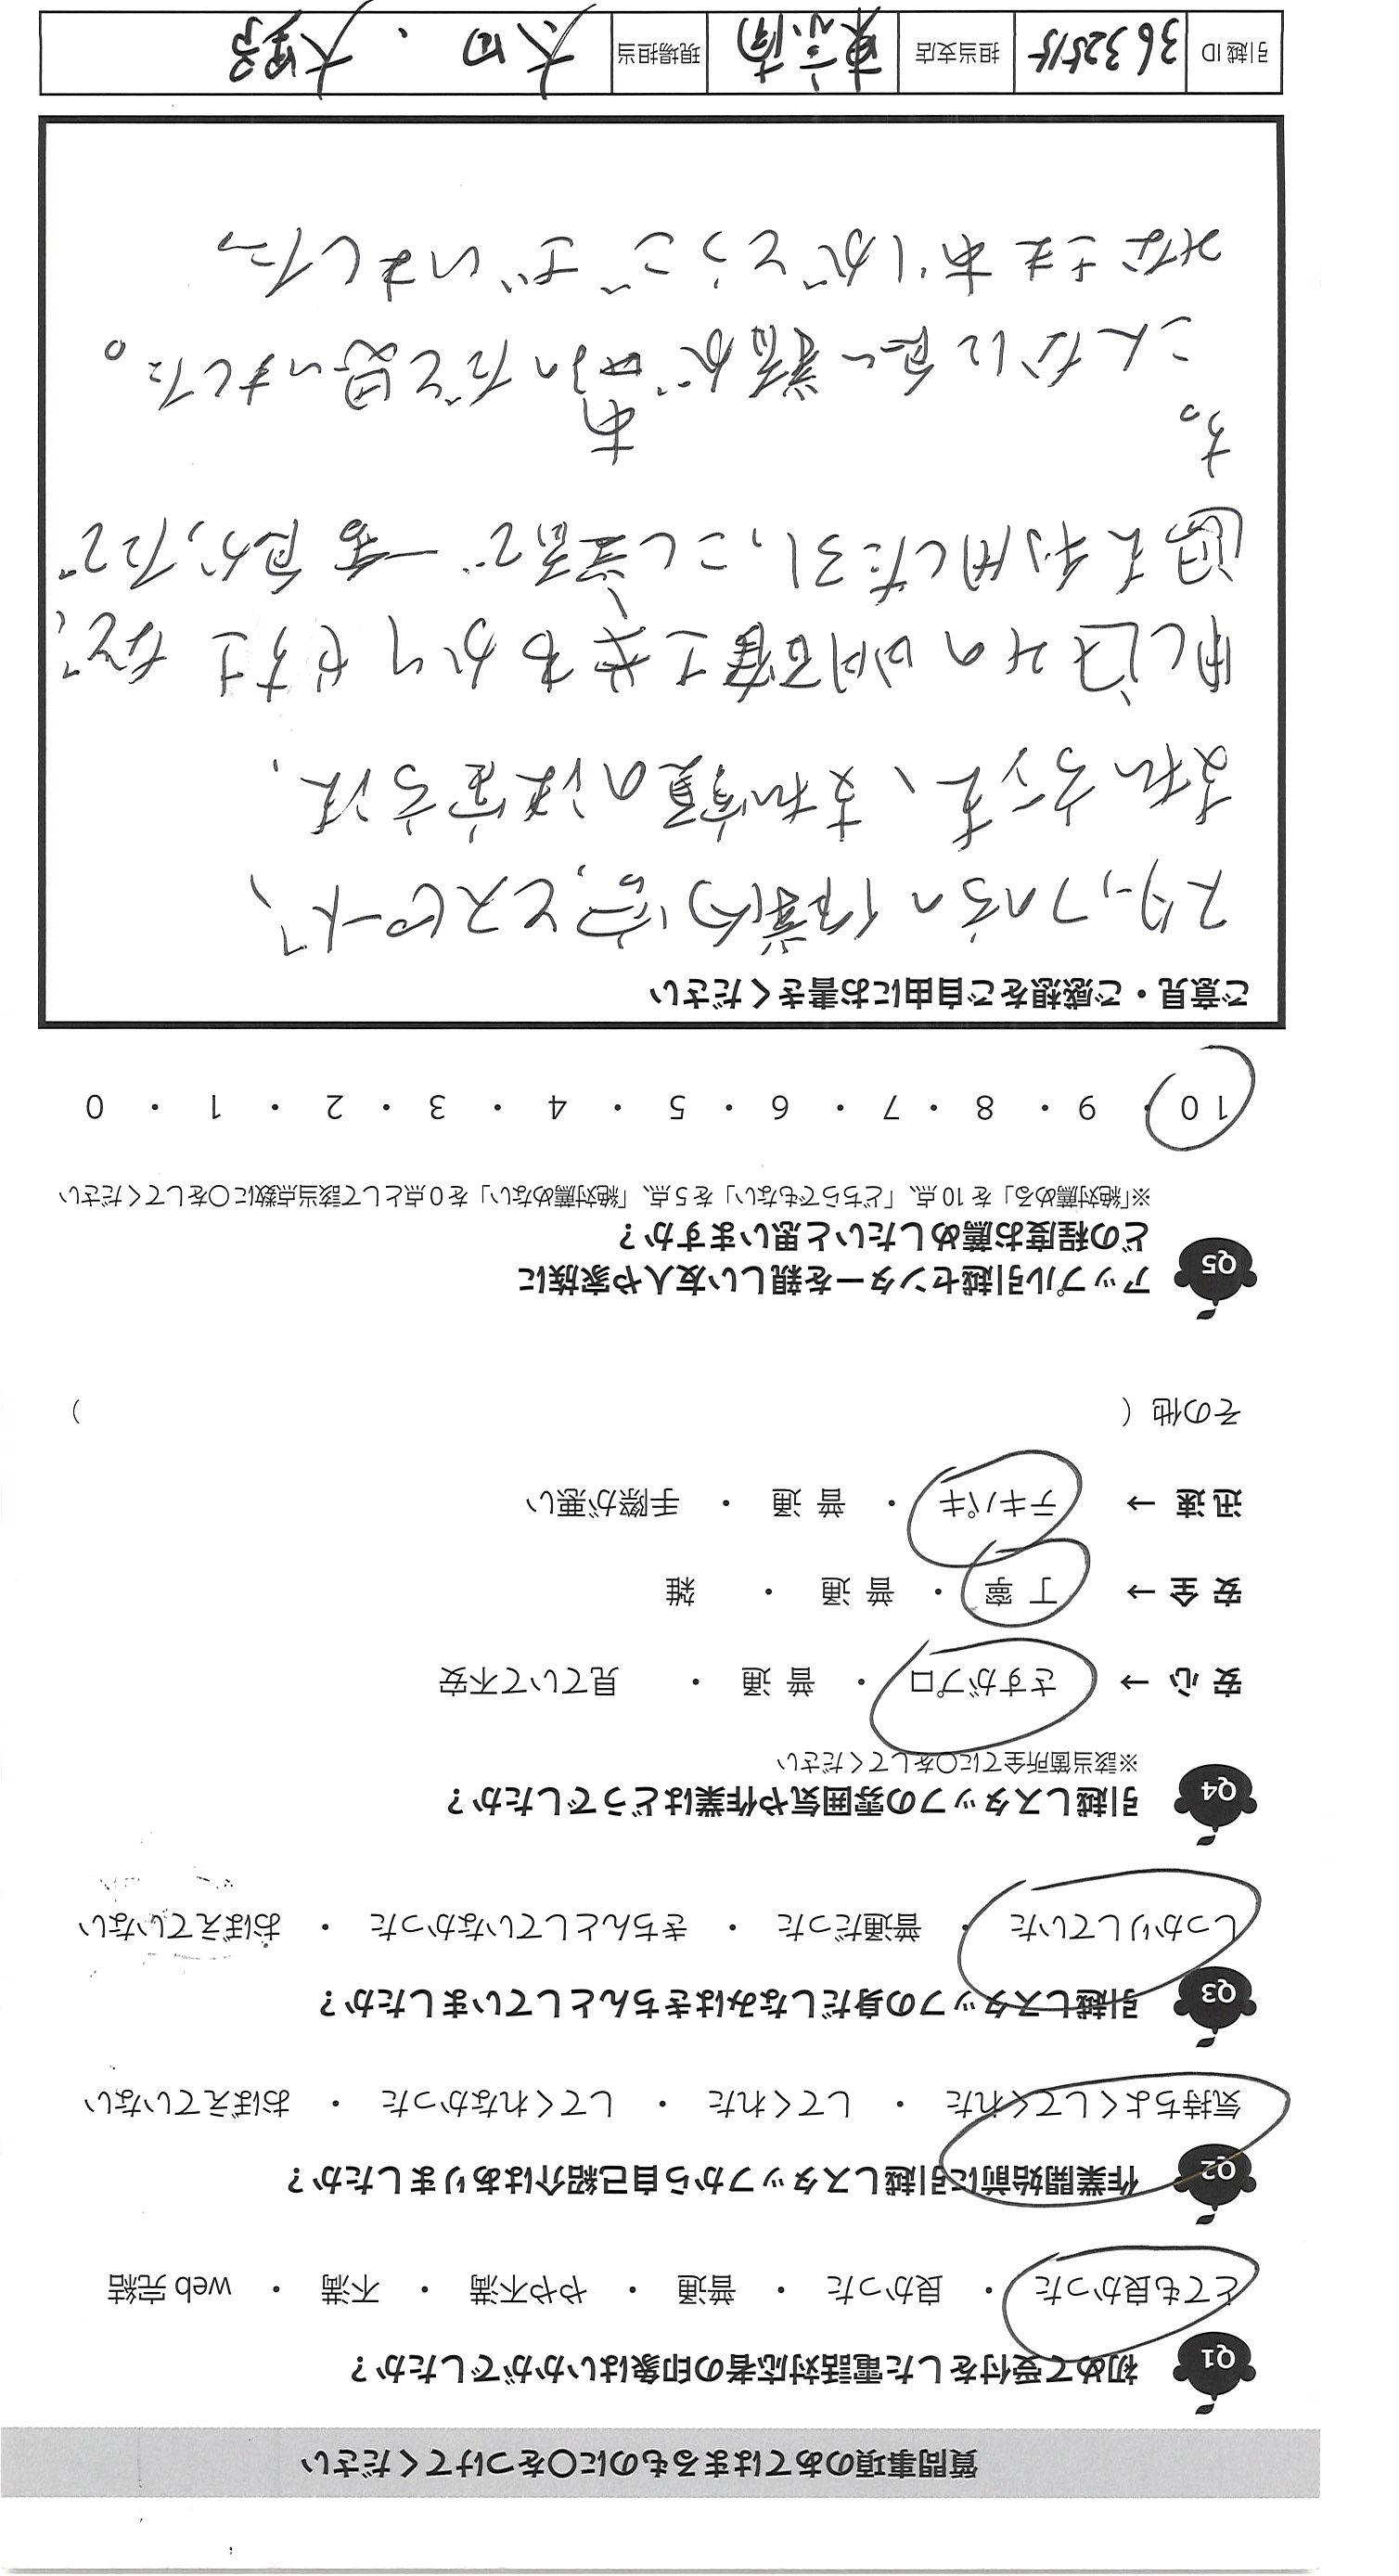 質問事項のあてはまるものに○をつけてください
Q1 初めて受付をした電話対応者の印象はいかがでしたか？
とても良かった ・ 良かった ・ 普通 ・ やや不満 ・ 不満 ・ web 完結
Q2 作業開始前に引越しスタッフから自己紹介はありましたか？
気持ちよくしてくれた ・ してくれた ・ してくれなかった ・ おぼえていない
Q3 引越しスタッフの身だしなみはきちんとしていましたか？
しっかりしていた ・ 普通だった ・ きちんとしていなかった ・ おぼえていない
Q4 引越しスタッフの雰囲気や作業はどうでしたか？
※該当箇所全てに○をしてください
安 心 → さすがプロ ・ 普 通 ・ 見ていて不安
安 全 → 丁 寧 ・ 普 通 ・ 雑
迅 速 → テキパキ ・ 普 通 ・ 手際が悪い
その他（ ）
Q5 アップル引越センターを親しい友人や家族に
どの程度お薦めしたいと思いますか？
※「絶対薦める」を 10 点、「どちらでもない」を 5 点、「絶対薦めない」を 0 点として該当点数に○をしてください
10 ・ 9 ・ 8 ・ 7 ・ 6 ・ 5 ・ 4 ・ 3 ・ 2 ・ 1 ・ 0
ご意見・ご感想をご自由にお書きください
スタッフの方の作業内容とスピード、
支払方法、支払額の決定方法、
申し込みの明確さわかりやすさ など、
回も利用したひっこし業者で一番良かったで
す。
こんなに良い業者があったんだと思いました。
みなさまありがとうございました。
引越 ID 3632515 担当支店 東京南 現場担当 太田 ・ 大野